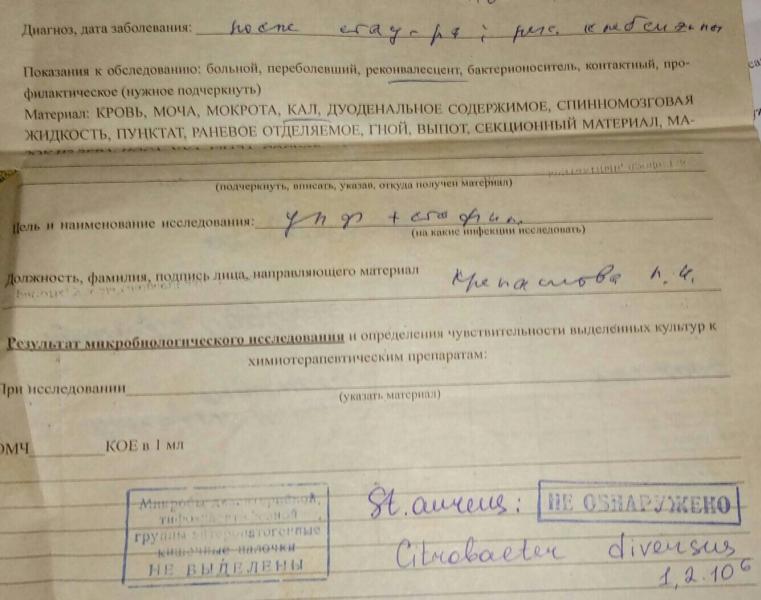 Диагноз, дата заболевания: после
Показания к обследованию: больной, переболевший, реконвалесцент, бактерионоситель, контактный, про-
филактическое (нужное подчеркнуть)
Материал: КРОВЬ, МОЧА, МОКРОТА, КАЛ, ДУОДЕНАЛЬНОЕ СОДЕРЖИМОЕ, СПИННОМОЗГОВАЯ
ЖИДКОСТЬ, ПУНКТАТ, РАНЕВОЕ ОТДЕЛЯЕМОЕ, ГНОЙ, ВЫПОТ, СЕКЦИОННЫЙ МАТЕРИАЛ, МА-
(подчеркнуть, вписать, указав, откуда получен материал)
Цель и наименование исследования: упф + стафил.
(на какие инфекции исследовать)
Должность, фамилия, подпись лица, направляющего материал
Результат микробиологического исследования и определения чувствительности выделенных культур к
химиотерапевтическим препаратам:
При исследовании
(указать материал)
ОМЧ КОЕ в 1 мл
Микробы дизентерийной,
группы энтеропатогенные
кишечные палочки
НЕ ВЫДЕЛЕНЫ
St. aureus: НЕ ОБНАРУЖЕНО
Citrobacter diversus
1,2·10⁶